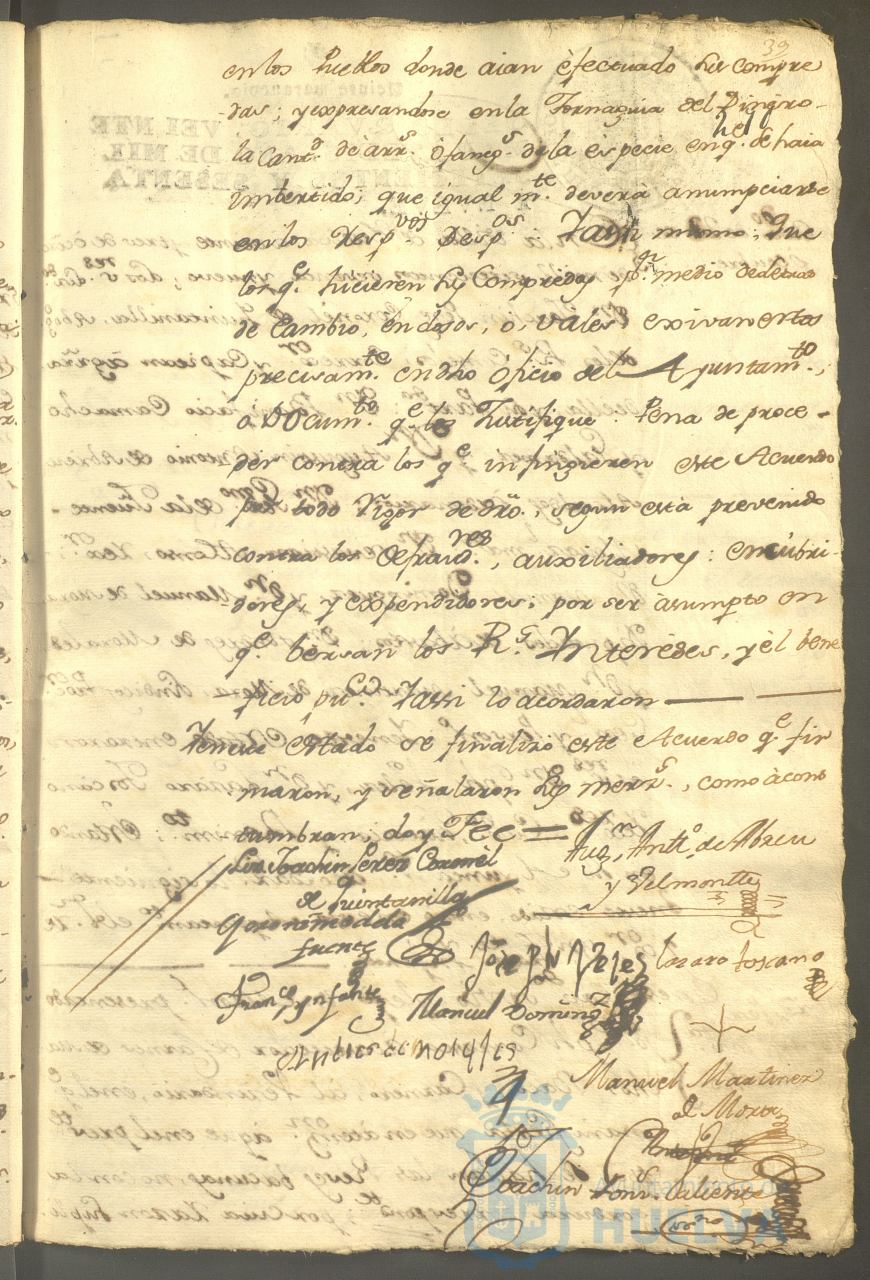 39
en los Pueblos donde aian èfectuado las Compre
das; y expresandose en la Tornaguia del Dinero
la Cant.ᵈ de arr.ˢ ò faneg.ˢ de la èspecie en q.ᵉ se haia
imbertido; que igual m.ᵗᵉ deverà anumpciarse
en los Resp.ᵛᵒˢ Desp.ᵒˢ Y assi mismo, que
los q.ᵉ hicieren las Compredas p.ʳ medio de letras
de Cambio, èndosos, ò, vales exivan estos
precisam.ᵗᵉ en dho òficio del Ayuntam.ᵗᵒ,
o Docum.ᵗᵒ q.ᵉ los Justifique Pena de proce-
der contra los q.ᵉ infringieren este Acuerdo
por todo Rigor de dro., segun està prevenido
contra los defraud.ʳᵉˢ, auxiliadores, encubri-
dores, y expendidores, por ser àsumpto en
q.ᵉ bersan los R.ˢ Yntereses, y èl bene
ficio pu.ᶜᵒ Y assi lo acordaron
Yen este estado se finalizò este Acuerdo q.ᵉ fir
maron, y señalaron sus merz.ˢ, como àcos
tumbran; doy Fee =
Liz. Joachin Perez Coronèl
de Quintanilla
Aug.ⁿ Ant.º de Abreu
y Velmonte
Geronimo de la
fuente
Joseph
Lazaro toscano
Fran.ᶜᵒ ynfante
Manuel Doming.ᶻ
Andres de morales
Manuel Martinez
de Mora
Joachin
Caliente
Ayuntamiento de
HUELVA